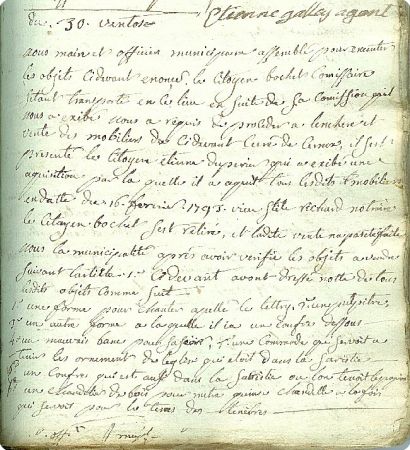 Etienne gallay agent
du 30. ventose
nous maire et officier municipaux assemblé pour executer
les objets cidevant enoncé, le citoyen bochet Comissaire
s'etant transporté en ce lieu en suite de sa Comission qu'il
nous a exibé nous a requis de proceder a lenchere et
vente des mobiliers du Cidevant Curé de , il s'est
presenté le Citoyen etienne duperier qui a exibé une
aquisition par la quelle il a aquit tous lesdits mobiliers
en datte du 16 fevrier 1793. richard notaire
le Citoyen bochet s'est retiré, et ladite vente na pas eté faite
nous la municipalité apres avoir verifié les objets a vendre
suivant l'article 1er Cidevant avons dressé notte de tous
lesdits objets comme suit
1° une forme pour chanter apellé les lettry, 2° un pupitre,
3° un autre forme a la quelle il i a un coufre dessous
4° un mauvais banc pour s'assoir, 5° une Commode qui servoit a
tenir les ornement de leglise qui etoit dans la sacristie
un Coufre qui est aussi dans la sacristie ou lon tenoit
un chandellier de bois pour mettre quinze chandelle a la fois
qui servoit pour les tems des tenebres